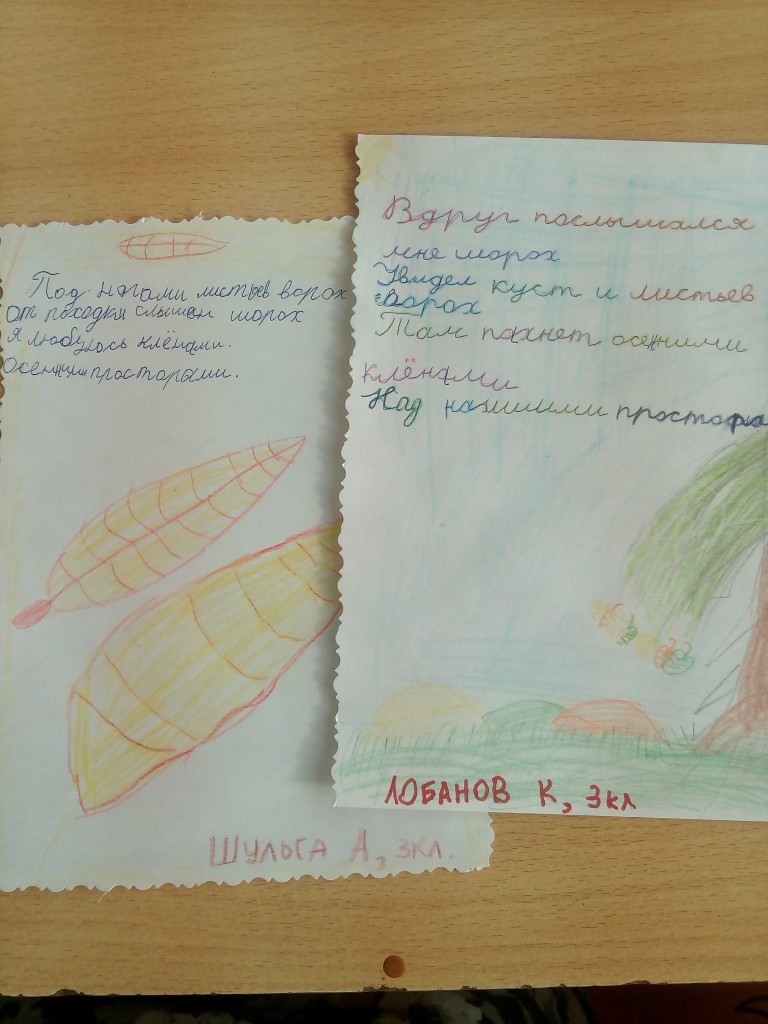 Под ногами листьев ворох
От походки слышен шорох
Я любуюсь клёнами.
Осенними просторами.
Шульга А, 3кл.
Вдруг послышался
мне шорох
Увидел куст и листьев
ворох
Там пахнет осенними
клёнами
Над нашими простора
ЛОБАНОВ К, 3кл